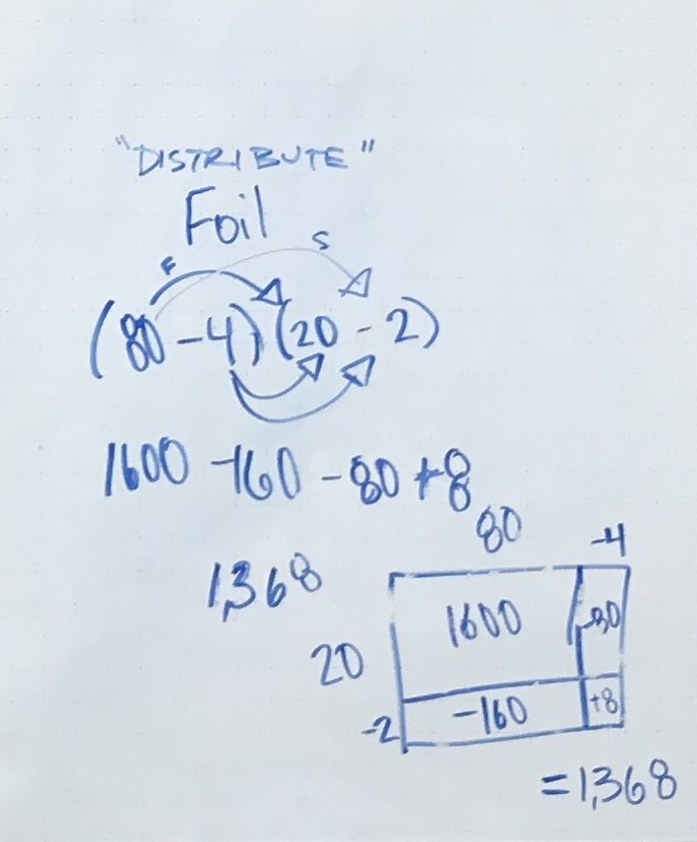 "DISTRIBUTE"
Foil
F S
(80-4)(20-2)
1600 -160 -80 +8
1,368
80 -4
1600 -80
20
-2 -160 +8
=1,368